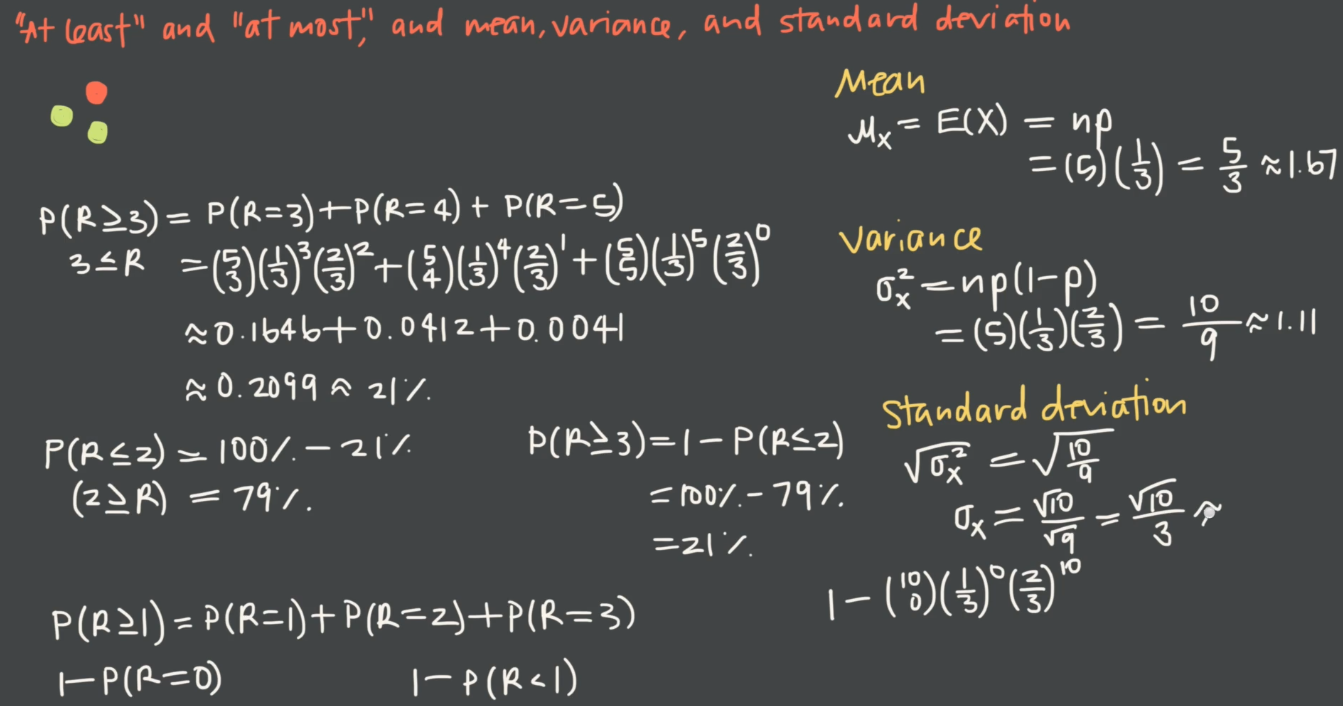 "At least" and "at most," and mean, variance, and standard deviation
P(R≥3) = P(R=3)+P(R=4)+P(R=5)
3≤R = (5 3)(1/3)^3(2/3)^2+(5 4)(1/3)^4(2/3)^1+(5 5)(1/3)^5(2/3)^0
≈0.1646+0.0412+0.0041
≈0.2099≈21%
P(R≤2)=100%-21%
(2≥R) = 79%
P(R≥3)=1-P(R≤2)
=100%-79%
=21%
P(R≥1)=P(R=1)+P(R=2)+P(R=3)
1-P(R=0) 1-P(R<1)
Mean
μ_X = E(X) = np
=(5)(1/3) = 5/3 ≈1.67
Variance
σ_X^2=np(1-p)
=(5)(1/3)(2/3) = 10/9 ≈1.11
Standard deviation
√σ_X^2 = √10/9
σ_X = √10/√9 = √10/3 ≈
1-(10 0)(1/3)^0(2/3)^10